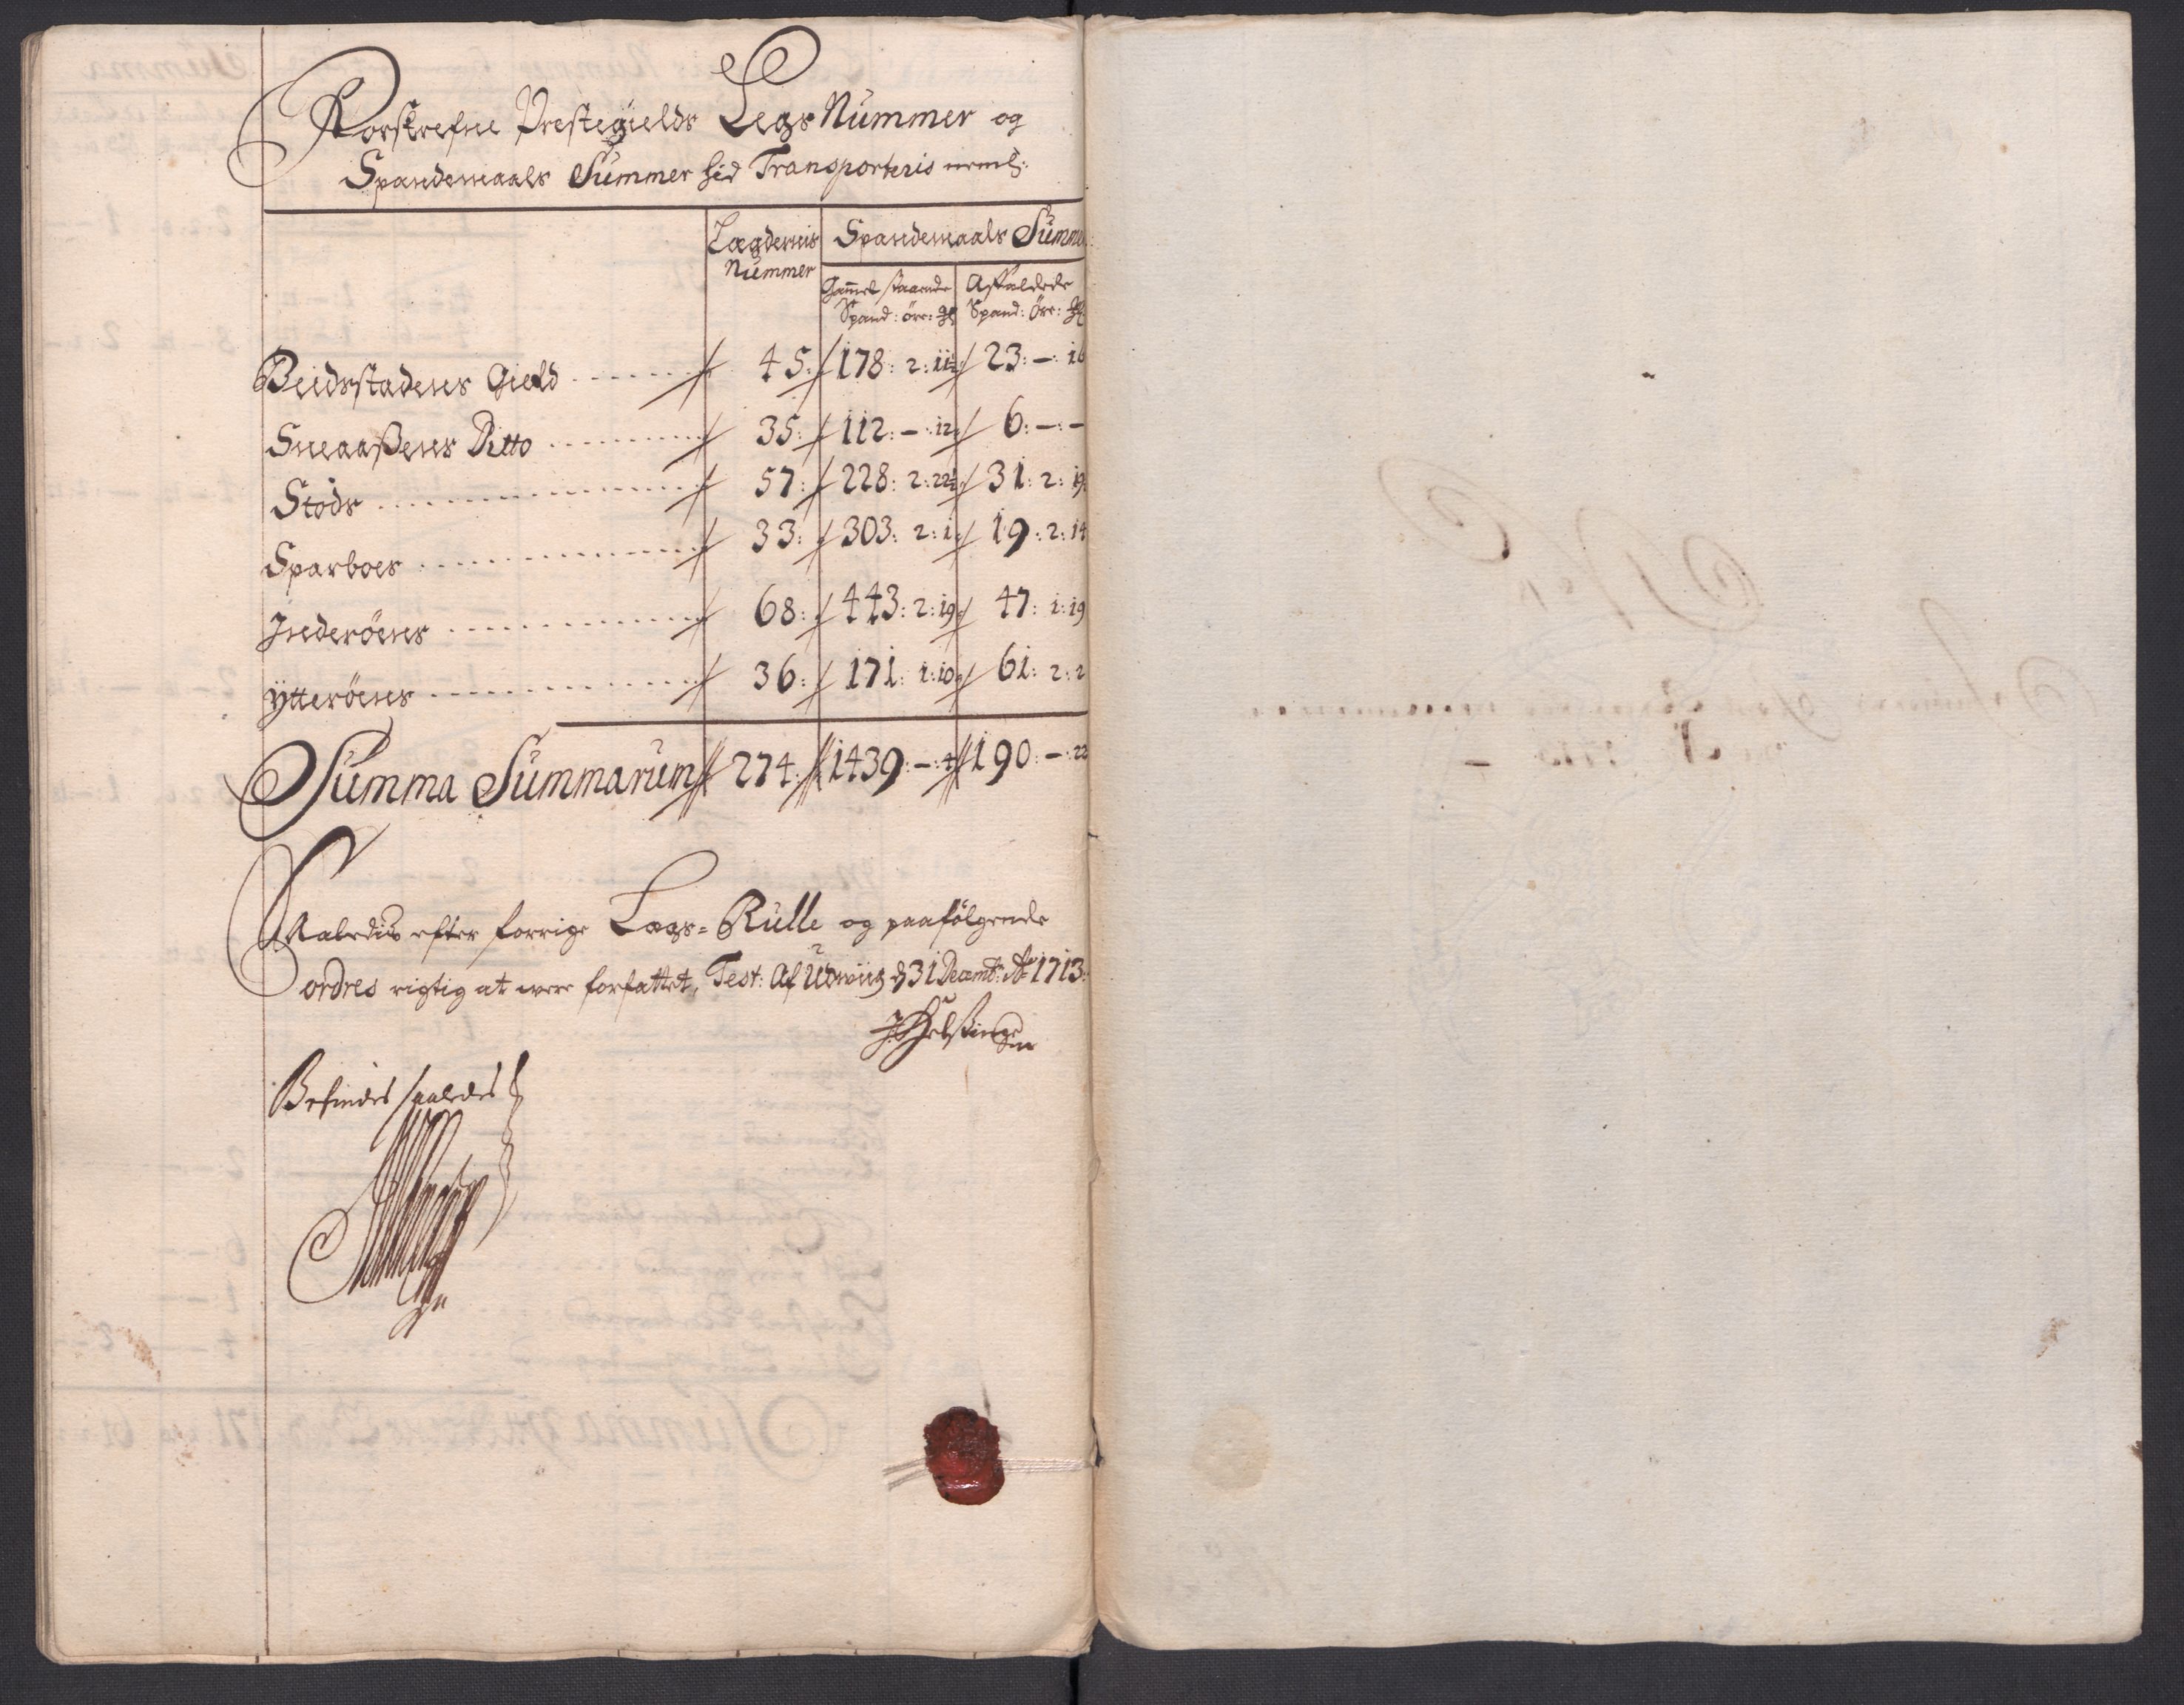 Forskrefne Prestegields Legs Nummer og
Spandemaals Summer hid Transporteris neml:
Lægdernis Nummer
Spandemaals Summer
Gammel staaende Aftældede
Spand: öre: Spand: öre:
Beidsstadens Gield 45: 178: 2: 11½ 23: –: 16
Sneaaßens Ditto 35: 112: –: 12: 6: –: –
Stods 57: 228: 2: 22½ 31: 2: 19:
Sparboes 33: 303: 2: 1: 19: 2: 14
Inderöens 68: 443: 2: 19: 47: 1: 19
Ytteröens 36: 171: 1: 10: 61: 2: 2
Summa Summarum 274: 1439: –: 4 190: –: 22
Saaledis efter forrige Lægs=Rulle og paafölgende
ordres rigtig at were forfattet, Test: Af d 31 Decemb: Ao 1713:
Befindes saaledes